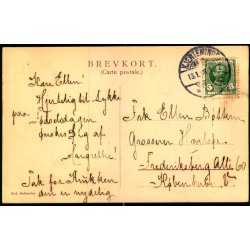 BREVKORT.
(Carte postale.)
Kære Ellen!
Hjertelig til Lykke
paa Fødselsdagen
ønskes Dig af
Margrethe!
Tak for Krukken
den er nydelig
Frk Ellen
Grosserer
Frederiksberg Allé 60
København V.